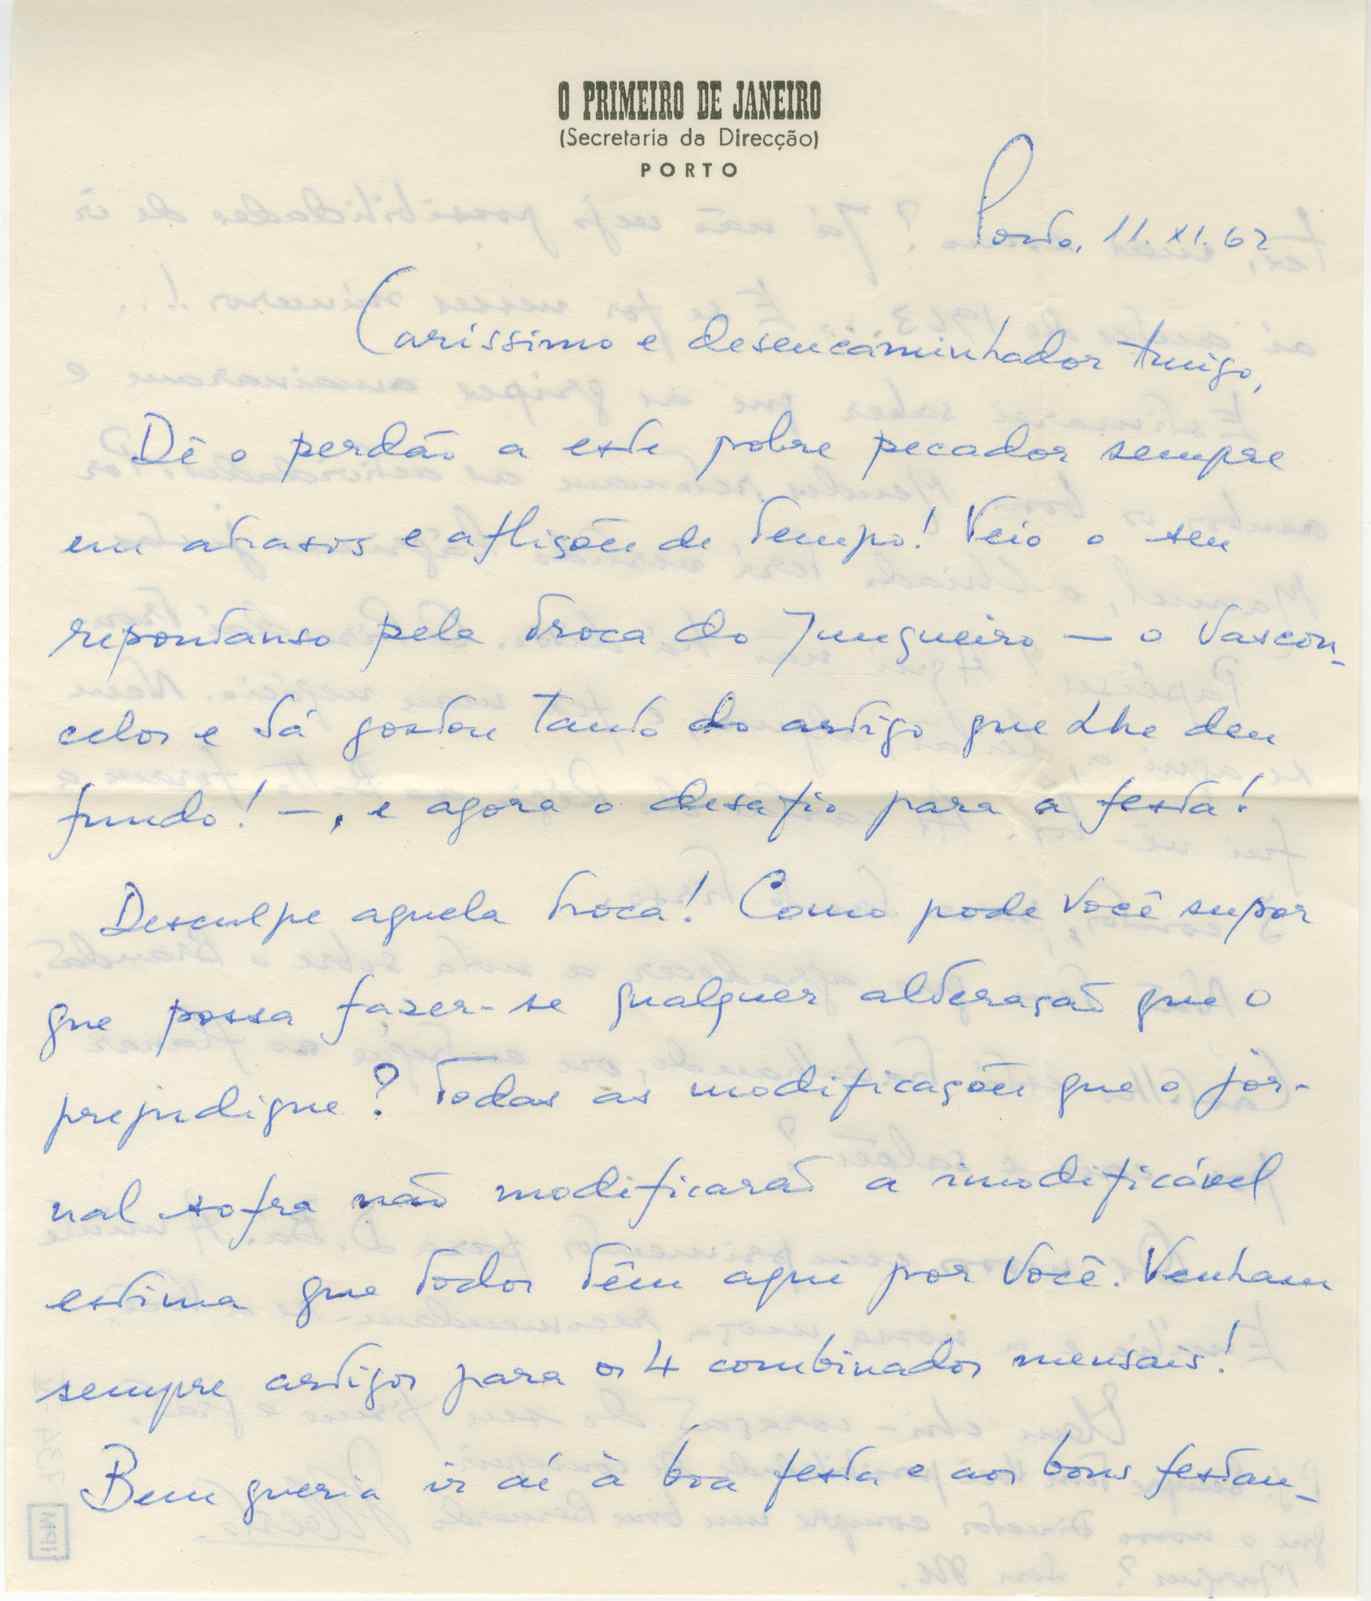 O PRIMEIRO DE JANEIRO
(Secretaria da Direcção)
PORTO
Porto, 11.XI.62
Caríssimo e desencaminhador Amigo,
Dê o perdão a este pobre pecador sempre
em atrasos e aflições de tempo! Veio o seu
repontanso pela troca do Junqueiro — o Vascon-
celos e Sá gostou tanto do artigo que Lhe deu
fundo! —, e agora o desafio para a festa!
Desculpe aquela troca! Como pode Você supor
que possa fazer-se qualquer alteração que o
prejudique? Todas as modificações que o jor-
nal sofra não modificarão a imodificável
estima que todos têm aqui por Você. Venham
sempre artigos para os 4 combinados mensais!
Bem queria ir aí à boa festa e aos bons festan-